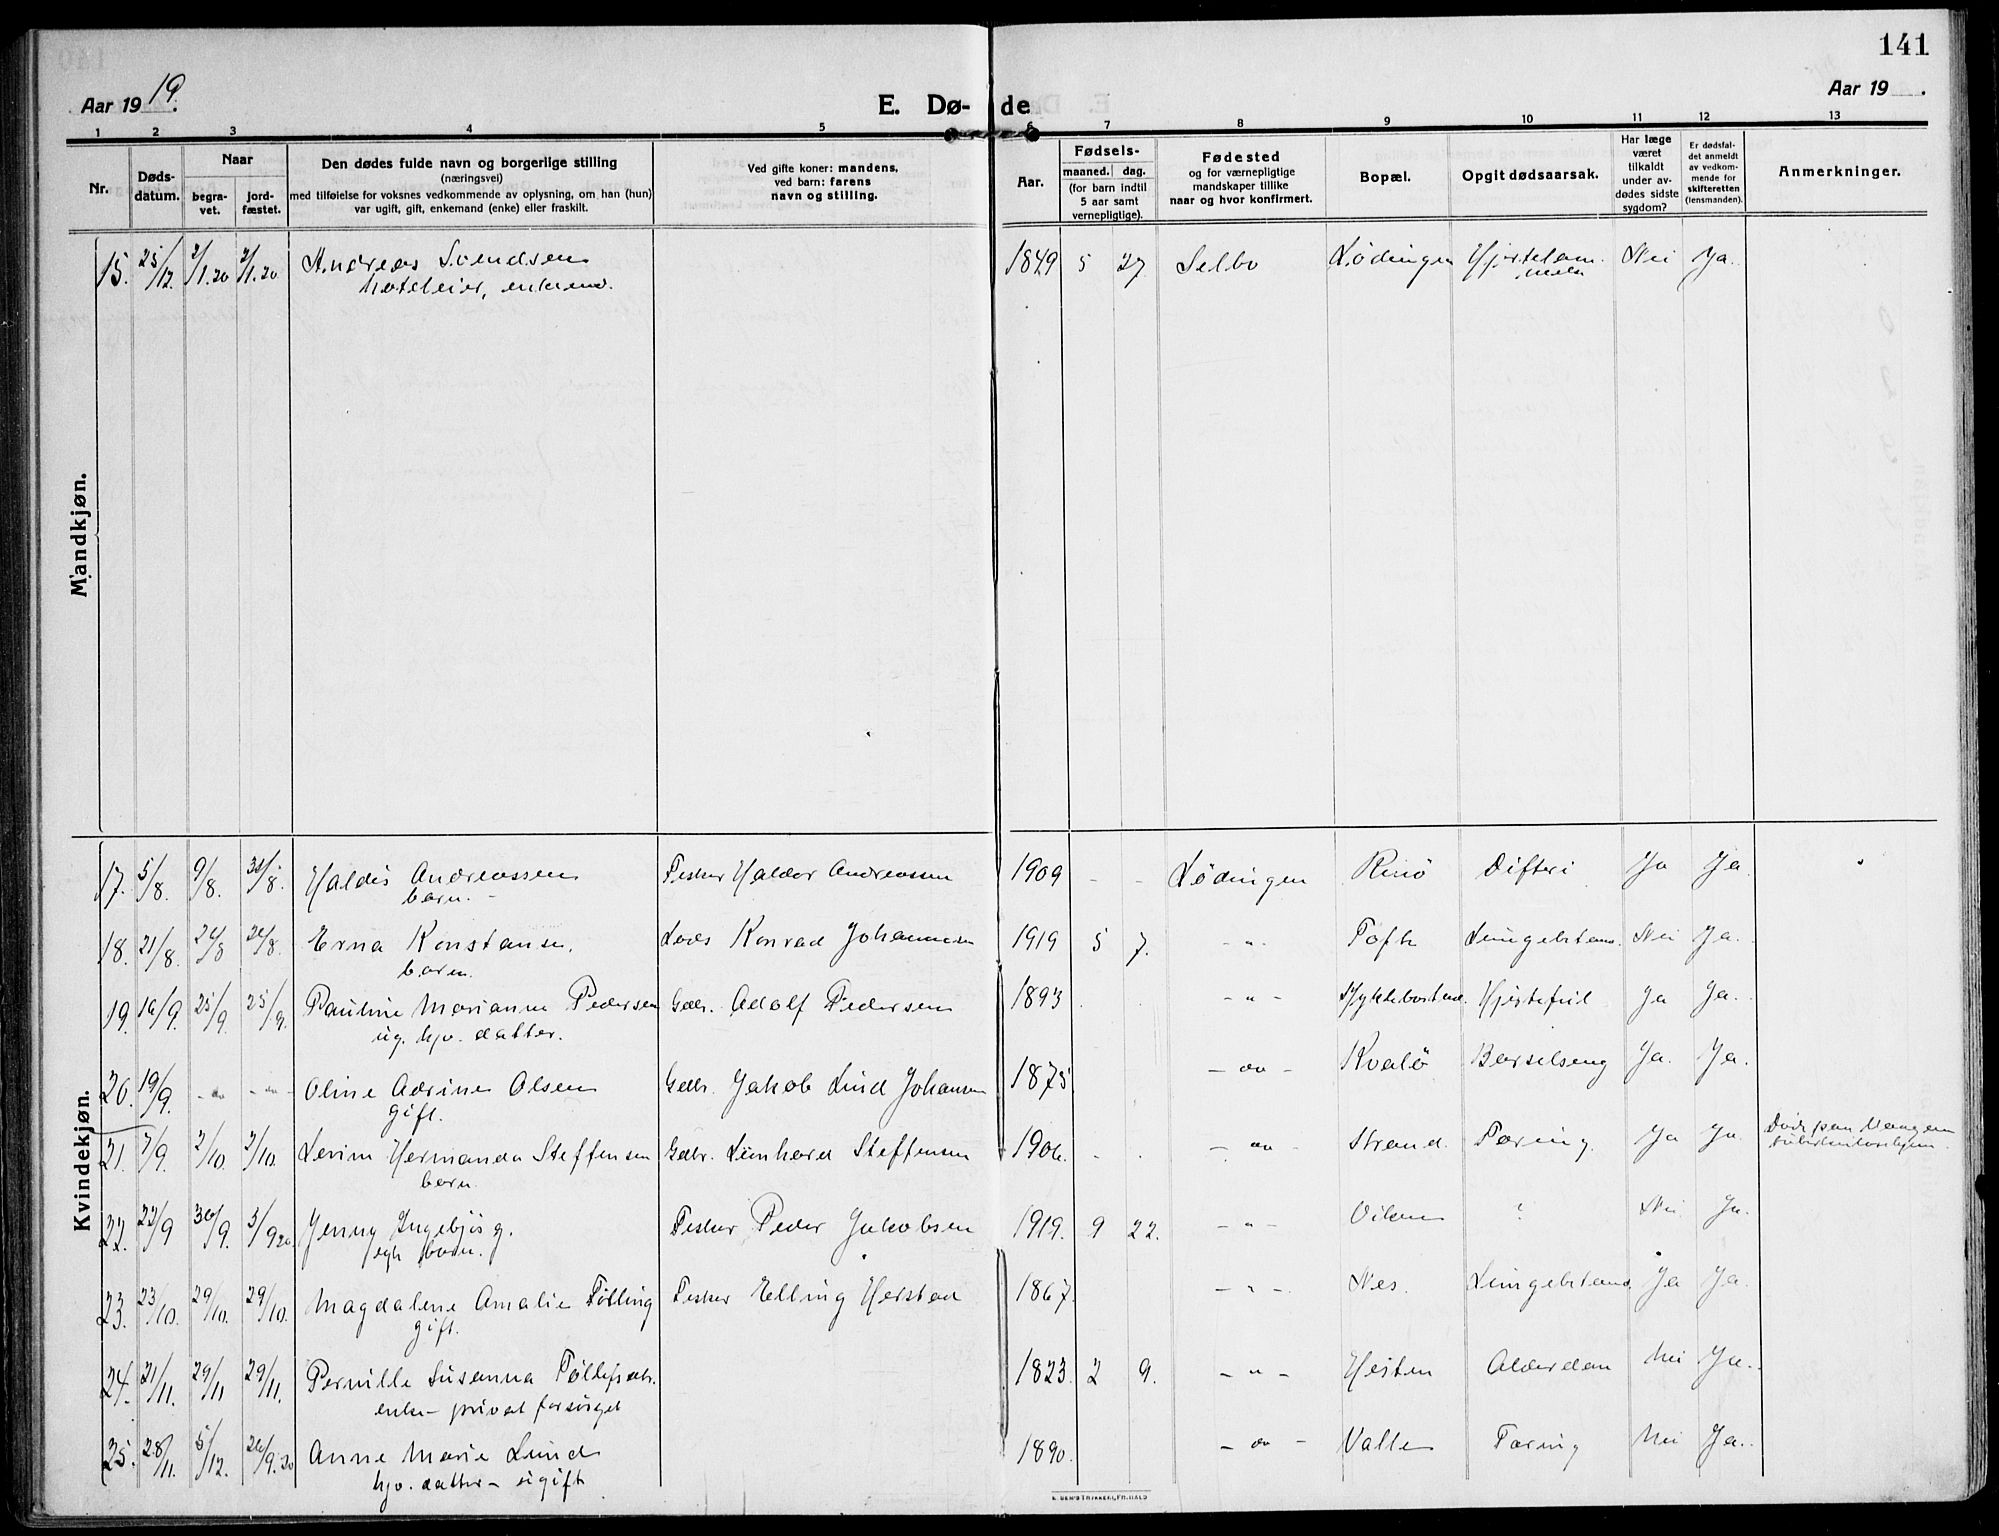 141
Aar 1919.
E. Dø- de
Aar 19 .
1 2 3 4 5 6 7 8 9 10 11 12 13
Nr.
Døds-
datum.
Naar
begra-
vet.
jord-
fæstet.
Den dødes fulde navn og borgerlige stilling
(næringsvei)
med tilføielse for voksnes vedkommende av oplysning, om han (hun)
var ugift, gift, enkemand (enke) eller fraskilt.
Ved gifte koner: mandens,
ved barn: farens
navn og stilling.
Aar.
Fødsels-
maaned. dag.
(for barn indtil
5 aar samt
vernepligtige).
Fødested
og for værnepligtige
mandskaper tillike
naar og hvor konfirmert.
Bopæl.
Opgit dødsaarsak.
Har læge
været
tilkaldt
under av-
dødes sidste
sygdom?
Er dødsfal-
det anmeldt
av vedkom-
mende for
skifteretten
(lensmanden).
Anmerkninger.
Mandkjøn.
15. 25/12. 2/1.20 2/1.20 Andreas Svendsen 1849 5 27 Selbo Lødingen Nei Ja.
hoteleier, enkemd.
Kvindekjøn.
17. 5/8. 9/8. 31/8. Haldis Andreassen Fisker Haldor Andreassen 1909 - - Lødingen Rinø Difteri Ja Ja
barn. -
18. 21/8. 24/8 24/8. Erna Konstanse, Lods Konrad Johannesen 1919 5 7. - " - Toft Lungebetend. Nei Ja.
barn.
19. 16/9. 25/9 25/9. Pauline Marianne Pedersen Gdbr. Adolf Pedersen 1893 - " - Hjertefeil Ja Ja.
ug. hjv. datter.
20. 19/9. - " - - " - Oline Adrine Olsen Gdbr. Jakob Lind Johansen 1875 - " - Kvalø Barselseng Ja. Ja.
gift.
21. 7/9. 2/10. 2/10. Hermanda Steffensen Gdbr. Leonhard Steffensen 1906. - " - Strand. Tæring. Ja Ja.
barn.
22. 22/9 30/9. 5/9 20 Jenny Ingebjørg. Fisker Peder Jakobsen 1919. 9 22. - " - Viken ? Nei. Ja.
egte barn.
23. 23/10. 29/10. 29/10. Magdalene Amalie Tølling Fisker Elling Herstad 1867. - " - Nes. Lungebetend. Ja Ja.
gift.
24. 21/11. 29/11 29/11. Pernille Susanna Tøllefsdtr. 1823. 2 9. - " - Hesten Alderdom Nei Ja.
enke - privat forsørget
25. 28/11. 5/12. 26/9.20 Anne Marie Lund 1890. - " - Valle Tæring Nei Ja.
hjv. datter - ugift